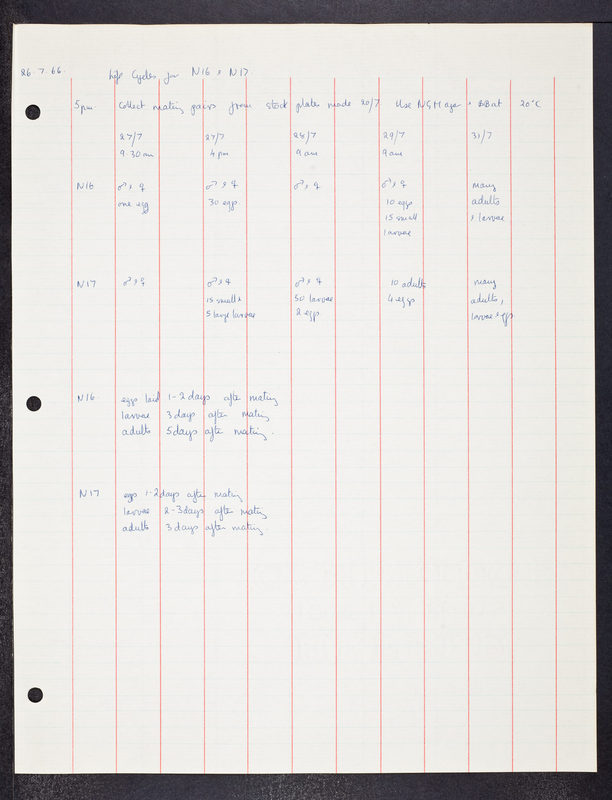 26.7.66. Life Cycles for N16 & N17
5pm Collect mating pairs from stock plates made 20/7 Use NGM agar + at 20°C
27/7 27/7 28/7 29/7 31/7
9.30am 4pm 9am 9am
N16 ♂ & ♀ ♂ & ♀ ♂ & ♀ ♂ & ♀ many
one egg 30 eggs 10 eggs adults
15 small & larvae
larvae
N17 ♂ & ♀ ♂ & ♀ ♂ & ♀ 10 adults many
15 small & 50 larvae 4 eggs adults,
5 large larvae 2 eggs larvae & eggs
N16. eggs laid 1-2 days after mating
larvae 3 days after mating
adults 5 days after mating.
N17 eggs 1-2 days after mating
larvae 2-3 days after mating
adults 3 days after mating.